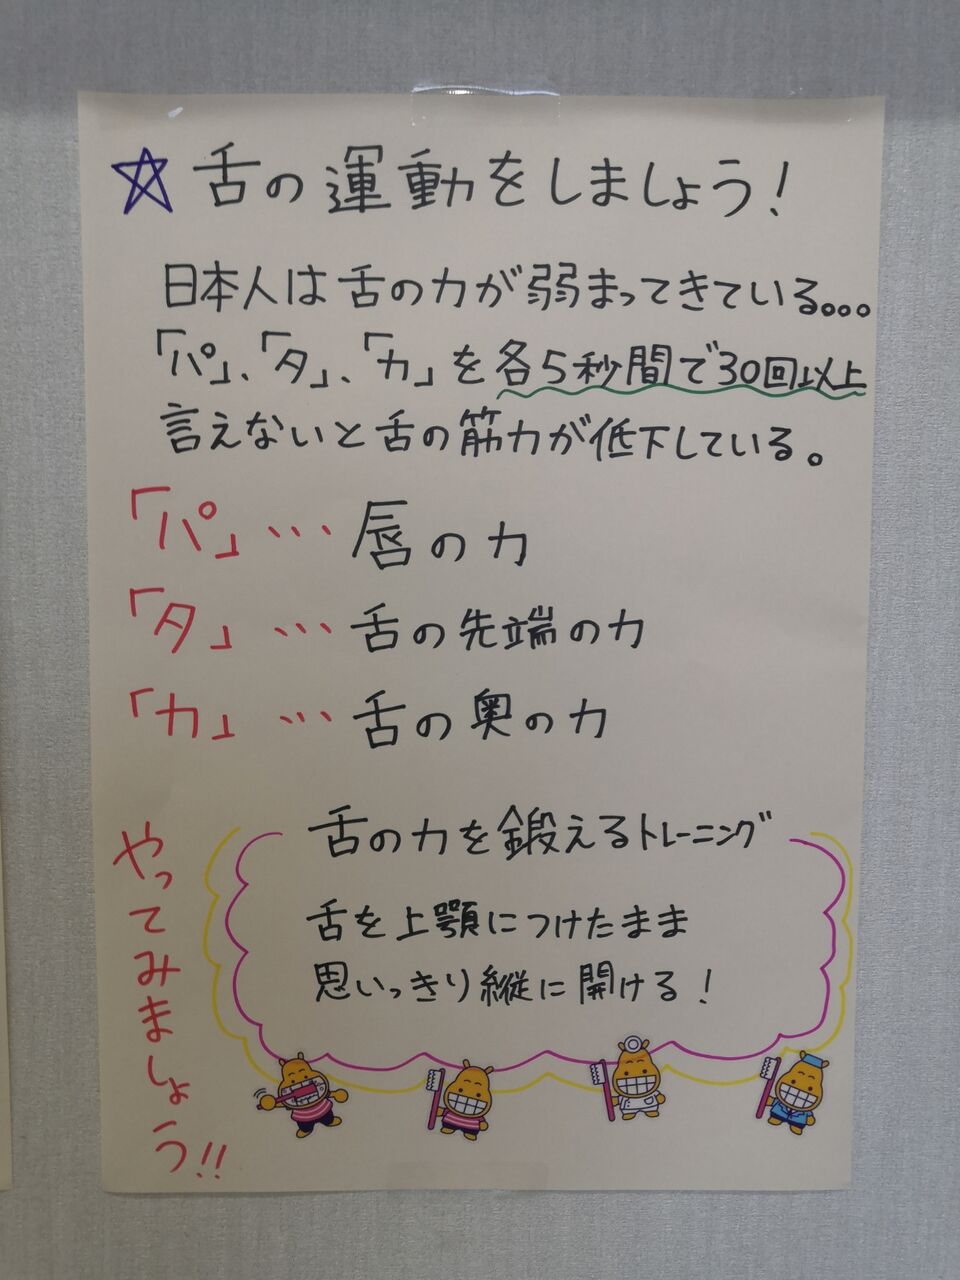 ☆舌の運動をしましょう！
日本人は舌の力が弱まってきている。。。
「パ」、「タ」、「カ」を各5秒間で30回以上
言えないと舌の筋力が低下している。
「パ」…唇の力
「タ」…舌の先端の力
「カ」…舌の奥の力
やってみましょう!!
舌の力を鍛えるトレーニング
舌を上顎につけたまま
思いっきり縦に開ける！